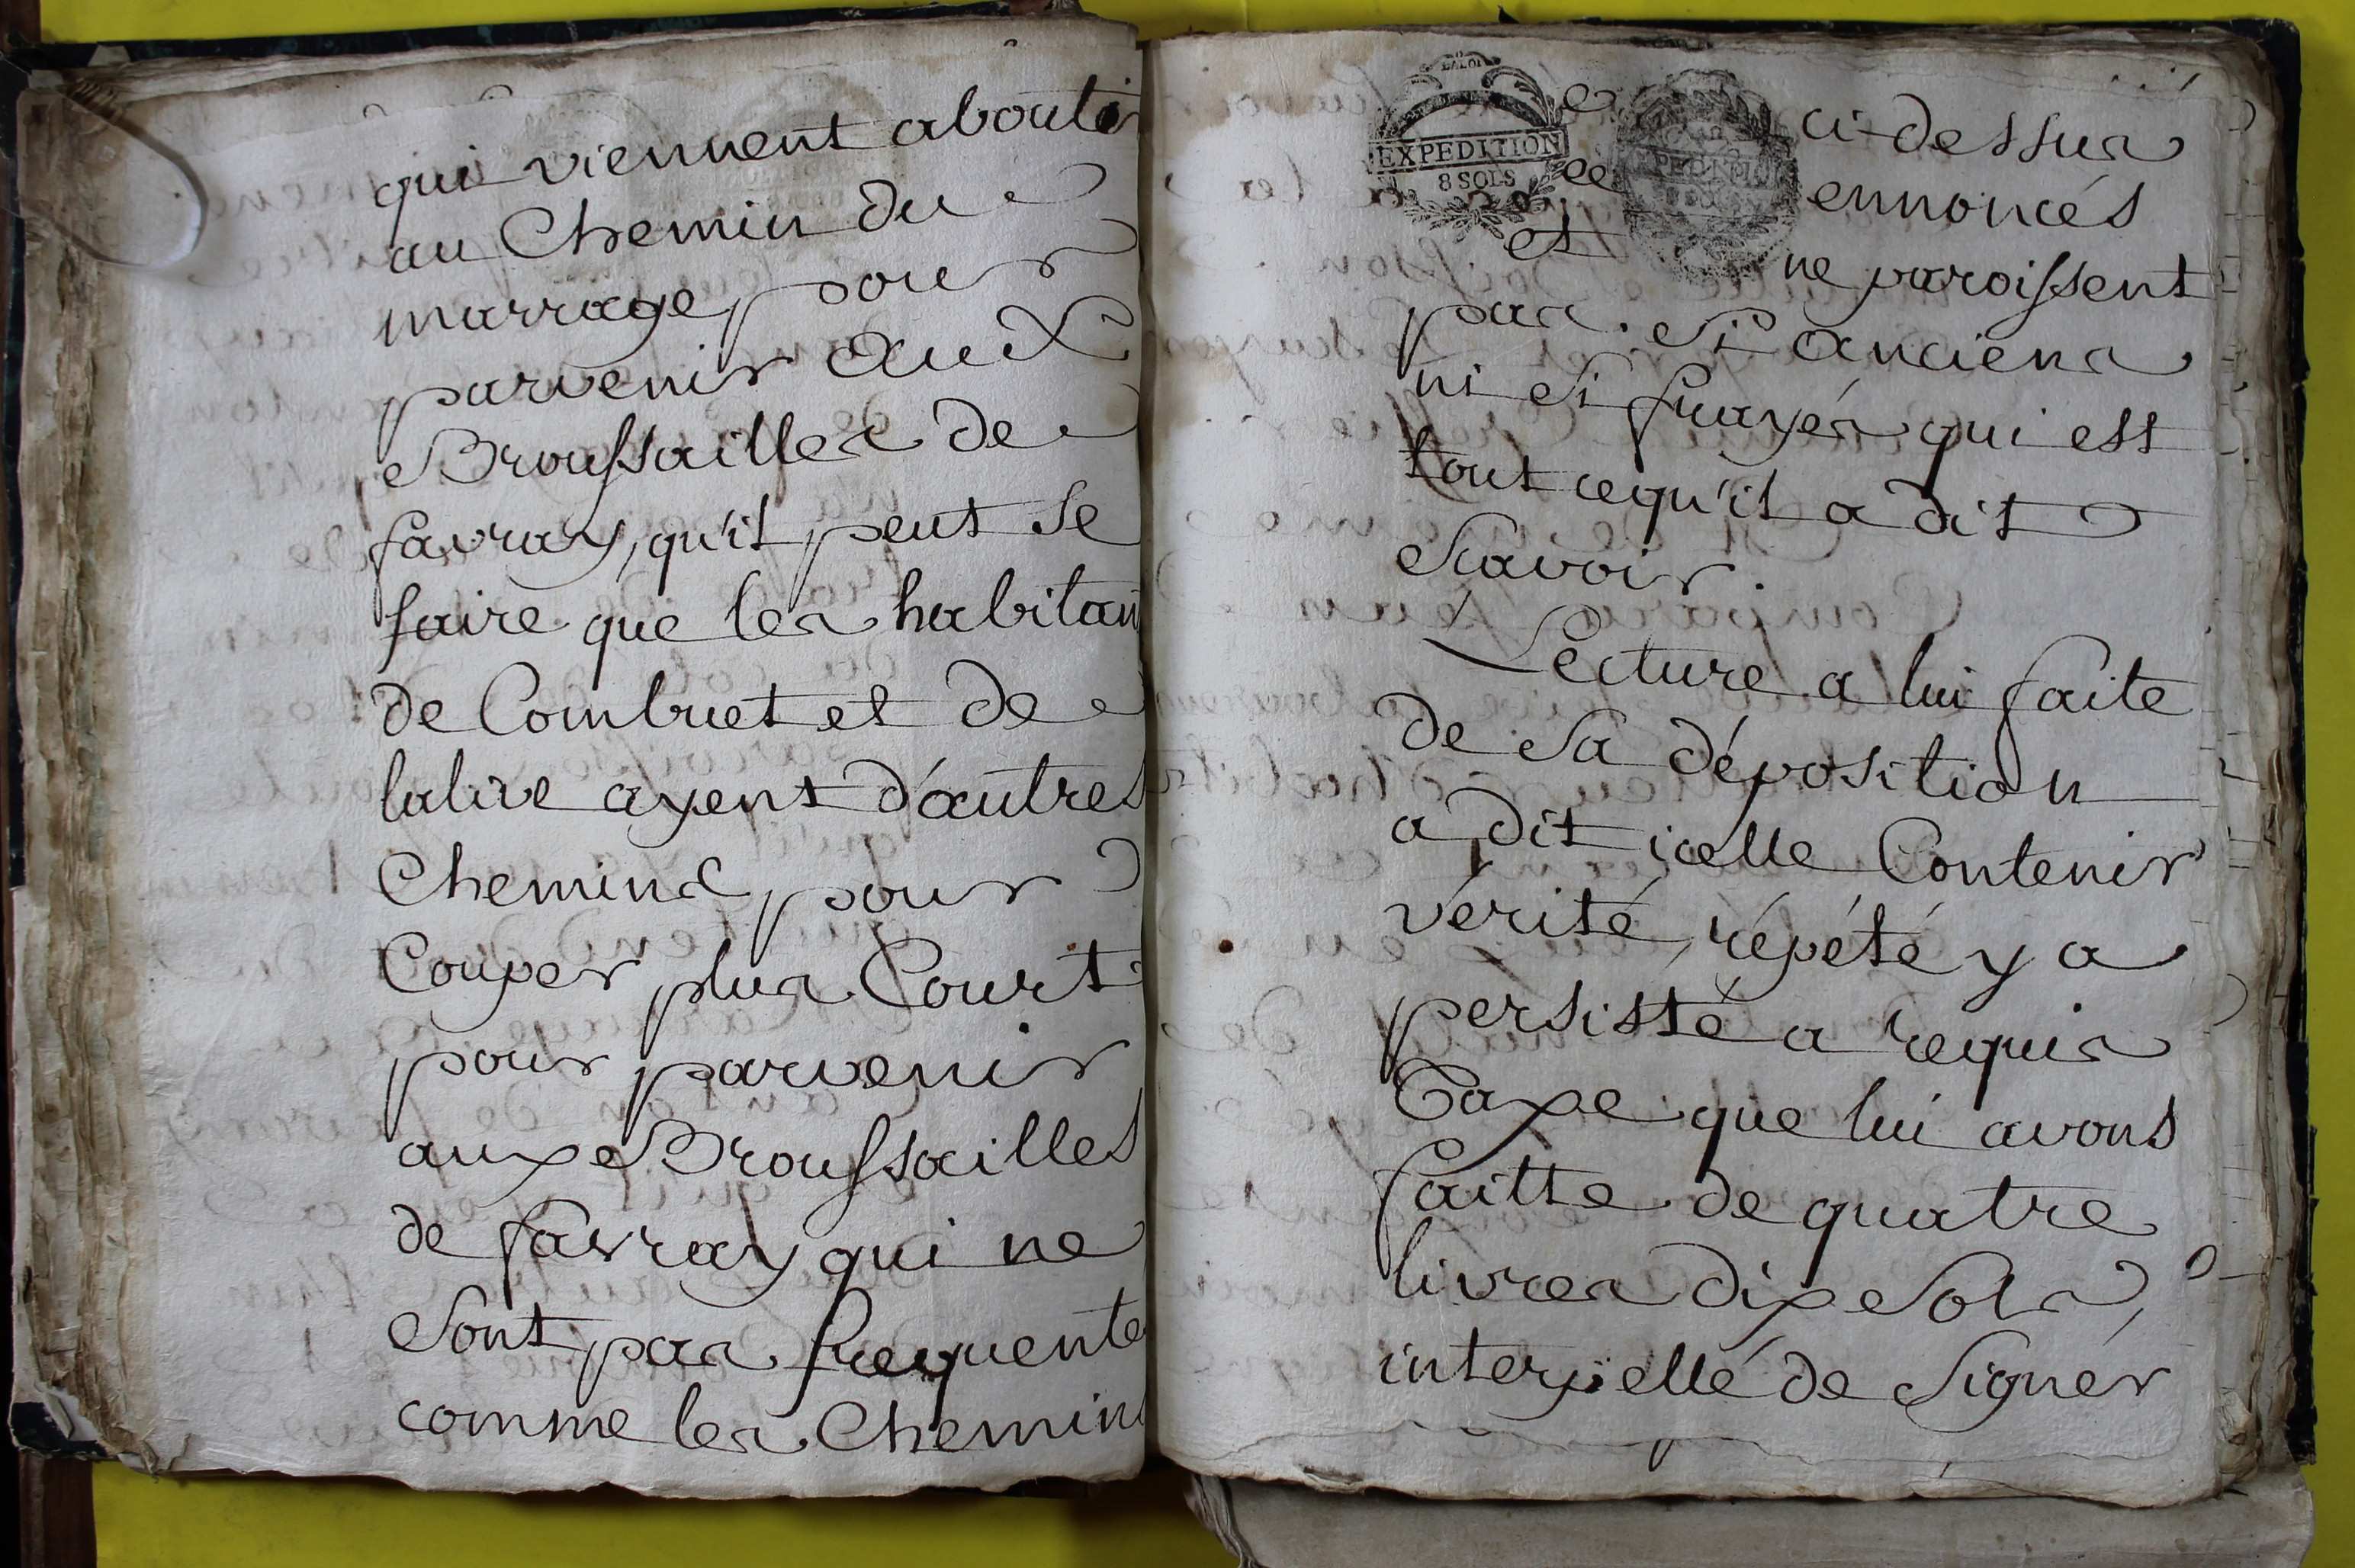 qui viennent abouti
au Chemin du
marrage, pour
parvenir aux
Broussailles de
favray, qu'il peut se
faire que les habitan
de Combret et de
lalive ayent d'autres
Chemins pour
Couper plus Court
pour parvenir
aux Broussailles
de favray qui ne
Sont pas frequente
comme les Chemins
EXPEDITION
8 SOLS
ci-dessus
ennoncés
et ne paroissent
pas si anciens
ni si frayés qui est
tout cequ'il a dit
Scavoir.
Lecture a lui faite
de Sa déposition
a dit icelle Contenir
vérité, répété y a
persisté a requis
Taxe que lui avons
faitte de quatre
livres dix Sols,
interpellé de Signer